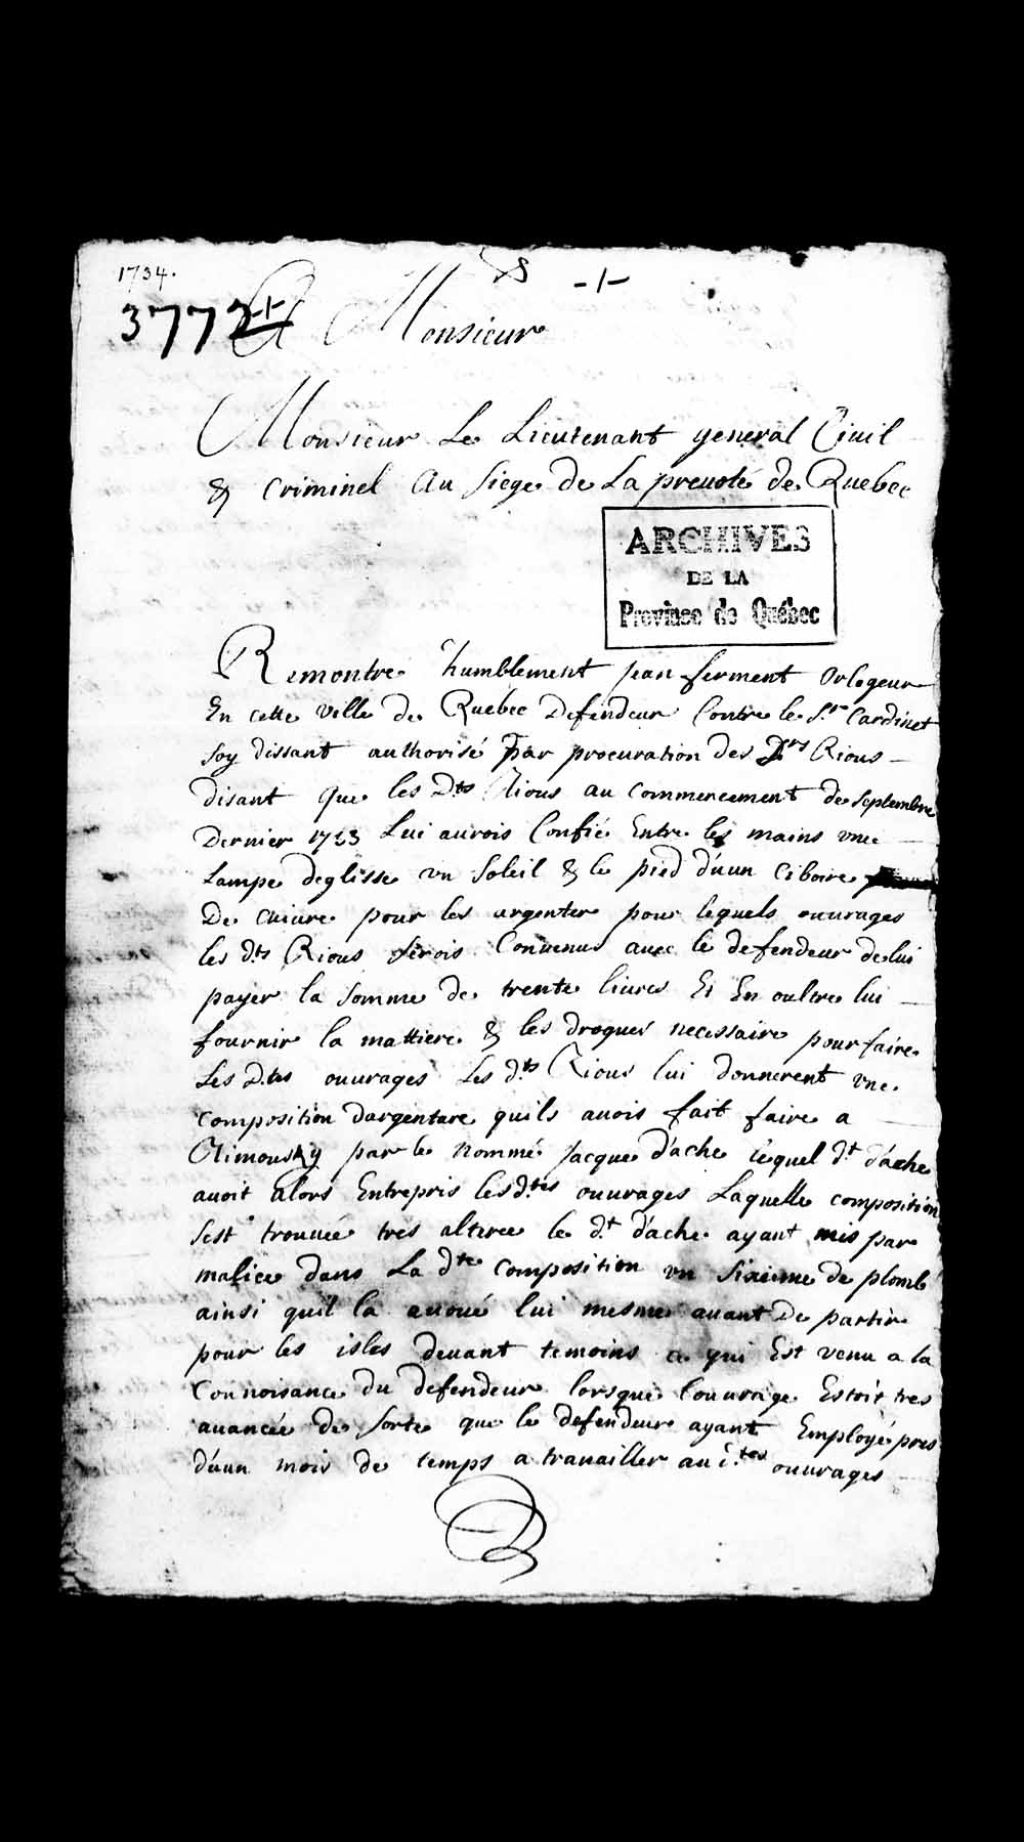 1734.
3772
Monsieur
Monsieur Le Lieutenant general Ciuil
& Criminel Au siege de La preuoté de Quebec
ARCHIVES
DE LA
Province de Québec
Remontre humblement jean ferment orlogeur
En cette ville de Quebec Defendeur Contre le S.r Cardinet
soy dissant authorisé par procuration des Drs Rious
disant que les Dts Rious au commencement de septembre
Dernier 1733 Lui aurois Confié Entre les mains vne
Lampe deglisse vn soleil & le pied d'uun Ciboire
De cuiure pour les argenter pour lequels ouurages
les d.ts Rious serois Conuenus auec le defendeur de lui
payer la somme de trente liures Et En oultre lui
fournir la mattiere & les drogues necessaire pour faire
Les D.tes ouurages Les d.ts Rious lui donnerent vne
composition dargenture quils auois fait faire a
Rimousky par le nommé jacque d'ache lequel d.t d'ache
auoit alors Entrepris les d.tes ouurages Laquelle composition
sest trouuée tres alteree le d.t d'ache ayant mis par
malice dans La dte composition vn sixieme de plomb
ainsi quil la auoué lui mesme auant De partir
pour les isles deuant temoins ce qui Est venu a la
Connoisance du defendeur lorsque l'ouurage Estoit tres
auancée de sorte que le defendeur ayant Employé pres
d'uun mois de temps a trauailler au d.tes ouurages